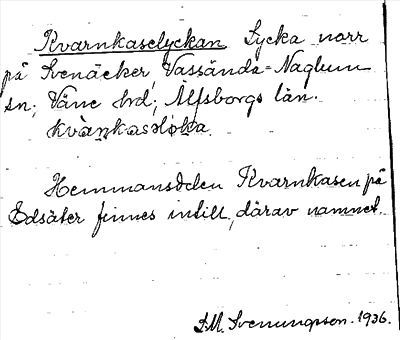 Kvarnkaselyckan Lycka norr
på Svenäcker, Vassända-Naglum
sn; Väne hd; Älfsborgs län.
Hemmansdelen Kvarnkasen på
Edsäter finnes intill, därav namnet.
1936.